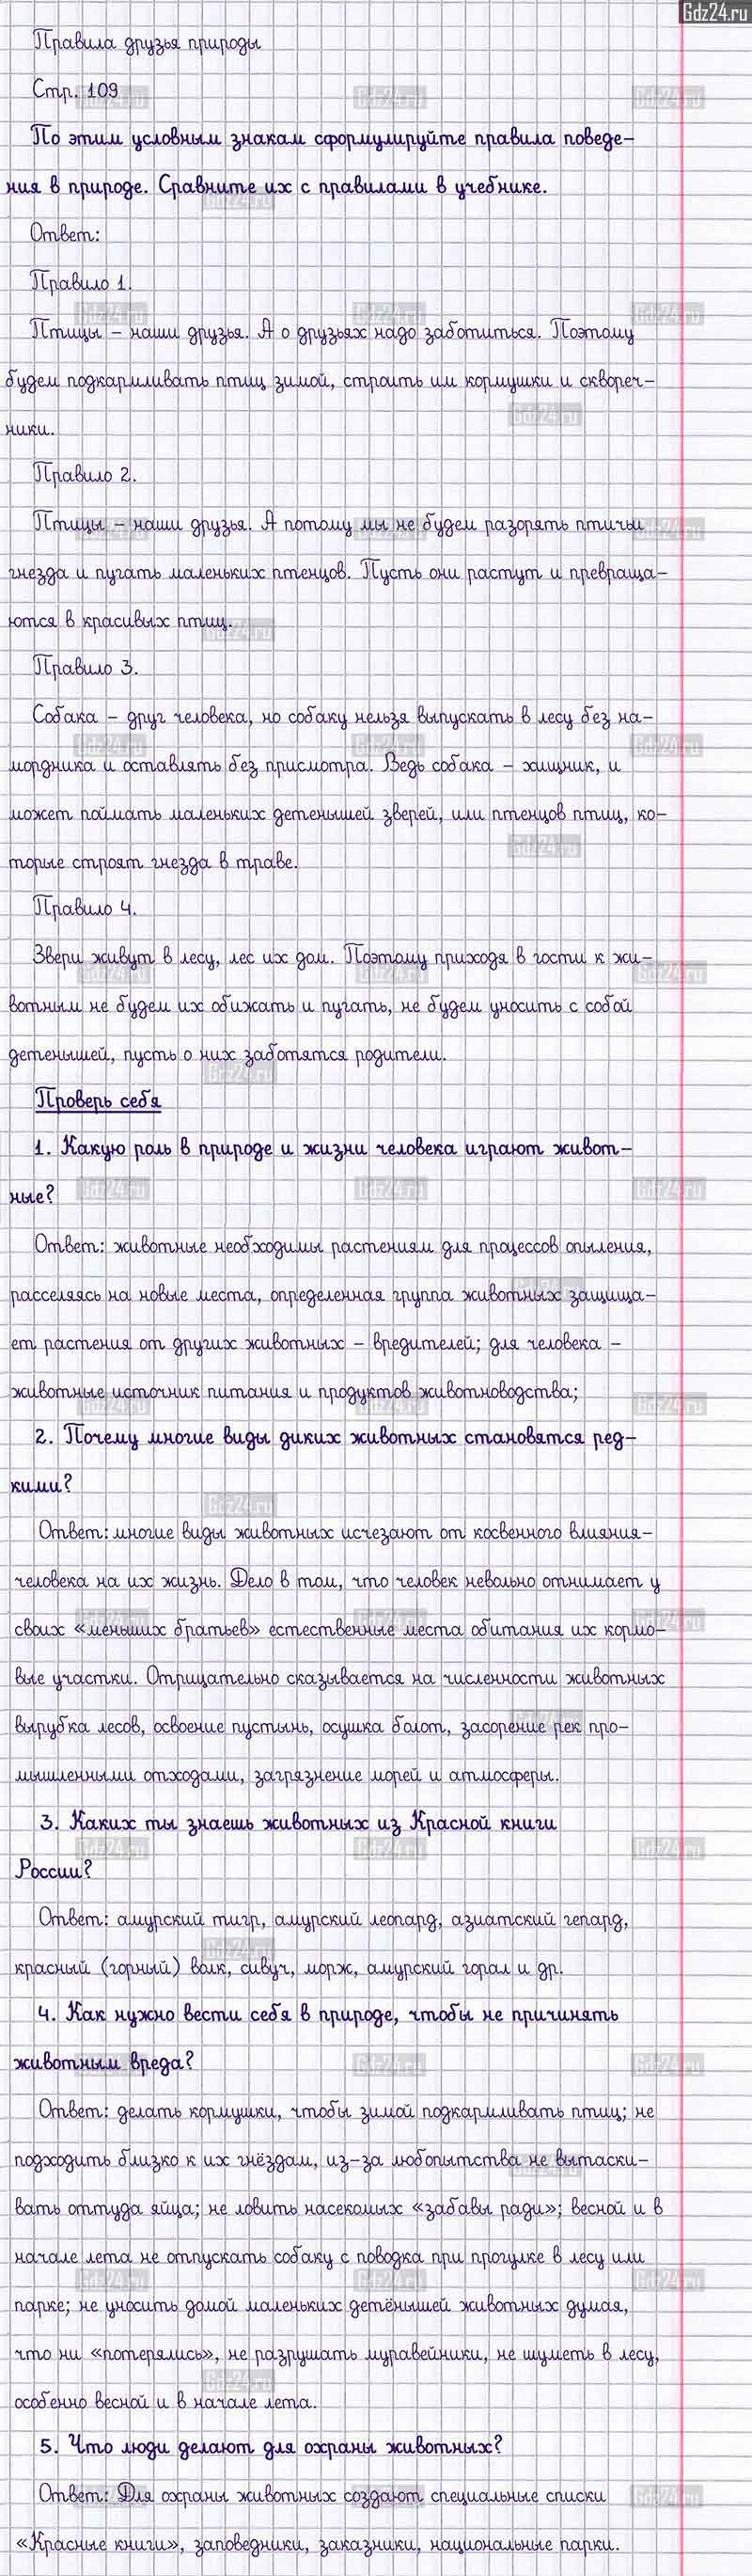 Gdz24.ru
Правила друзья природы
Стр. 109
По этим условным знакам сформулируйте правила поведе-
ния в природе. Сравните их с правилами в учебнике.
Ответ:
Правило 1.
Птицы – наши друзья. А о друзьях надо заботиться. Поэтому
будем подкармливать птиц зимой, строить им кормушки и сквореч-
ники.
Правило 2.
Птицы – наши друзья. А потому мы не будем разорять птичьи
гнезда и пугать маленьких птенцов. Пусть они растут и превраща-
ются в красивых птиц.
Правило 3.
Собака – друг человека, но собаку нельзя выпускать в лесу без на-
мордника и оставлять без присмотра. Ведь собака – хищник, и
может поймать маленьких детенышей зверей, или птенцов птиц, ко-
торые строят гнезда в траве.
Правило 4.
Звери живут в лесу, лес их дом. Поэтому приходя в гости к жи-
вотным не будем их обижать и пугать, не будем уносить с собой
детенышей, пусть о них заботятся родители.
Проверь себя
1. Какую роль в природе и жизни человека играют живот-
ные?
Ответ: животные необходимы растениям для процессов опыления,
расселяясь на новые места, определенная группа животных защища-
ет растения от других животных – вредителей; для человека –
животные источник питания и продуктов животноводства;
2. Почему многие виды диких животных становятся ред-
кими?
Ответ: многие виды животных исчезают от косвенного влияния-
человека на их жизнь. Дело в том, что человек невольно отнимает у
своих «меньших братьев» естественные места обитания их кормо-
вые участки. Отрицательно сказывается на численности животных
вырубка лесов, освоение пустынь, осушка болот, засорение рек про-
мышленными отходами, загрязнение морей и атмосферы.
3. Каких ты знаешь животных из Красной книги
России?
Ответ: амурский тигр, амурский леопард, азиатский гепард,
красный (горный) волк, сивуч, морж, амурский горал и др.
4. Как нужно вести себя в природе, чтобы не причинять
животным вреда?
Ответ: делать кормушки, чтобы зимой подкармливать птиц; не
подходить близко к их гнёздам, из-за любопытства не вытаски-
вать оттуда яйца; не ловить насекомых «забавы ради»; весной и в
начале лета не отпускать собаку с поводка при прогулке в лесу или
парке; не уносить домой маленьких детёнышей животных думая,
что ни «потерялись», не разрушать муравейники, не шуметь в лесу,
особенно весной и в начале лета.
5. Что люди делают для охраны животных?
Ответ: Для охраны животных создают специальные списки
«Красные книги», заповедники, заказники, национальные парки.